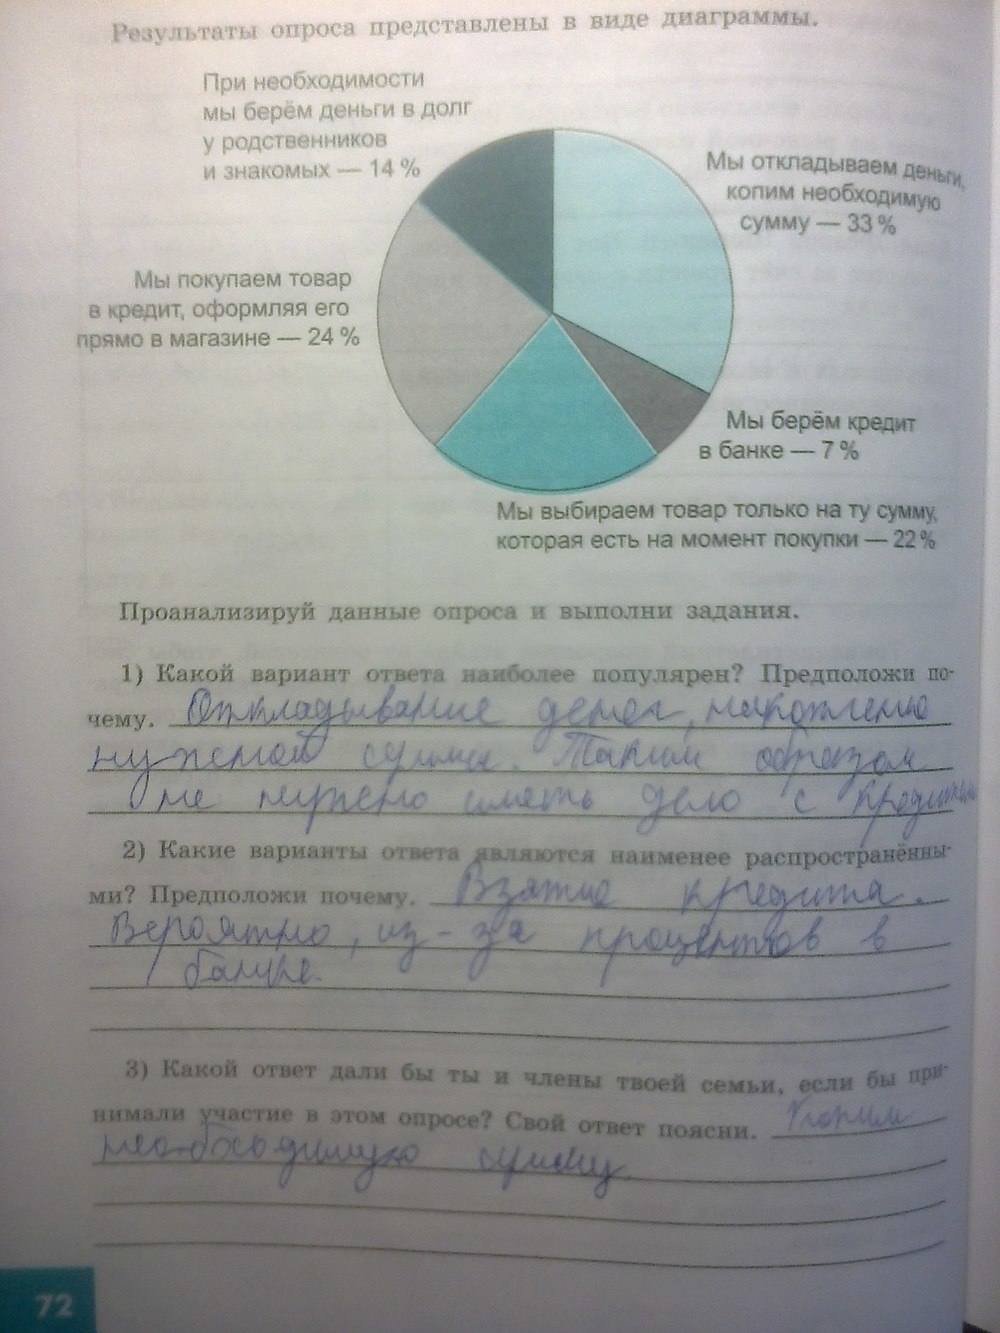 Результаты опроса представлены в виде диаграммы.
При необходимости
мы берём деньги в долг
у родственников
и знакомых — 14 %
Мы откладываем деньги,
копим необходимую
сумму — 33 %
Мы покупаем товар
в кредит, оформляя его
прямо в магазине — 24 %
Мы берём кредит
в банке — 7 %
Мы выбираем товар только на ту сумму,
которая есть на момент покупки — 22 %
Проанализируй данные опроса и выполни задания.
1) Какой вариант ответа наиболее популярен? Предположи по-
чему. Откладывание денег, накоплению
нужной суммы. Таким образом
не нужно иметь дело с кредитами
2) Какие варианты ответа являются наименее распространённы-
ми? Предположи почему. Взятие кредита.
Вероятно, из-за процентов в
банке.
3) Какой ответ дали бы ты и члены твоей семьи, если бы при-
нимали участие в этом опросе? Свой ответ поясни. Копим
необходимую сумму
72